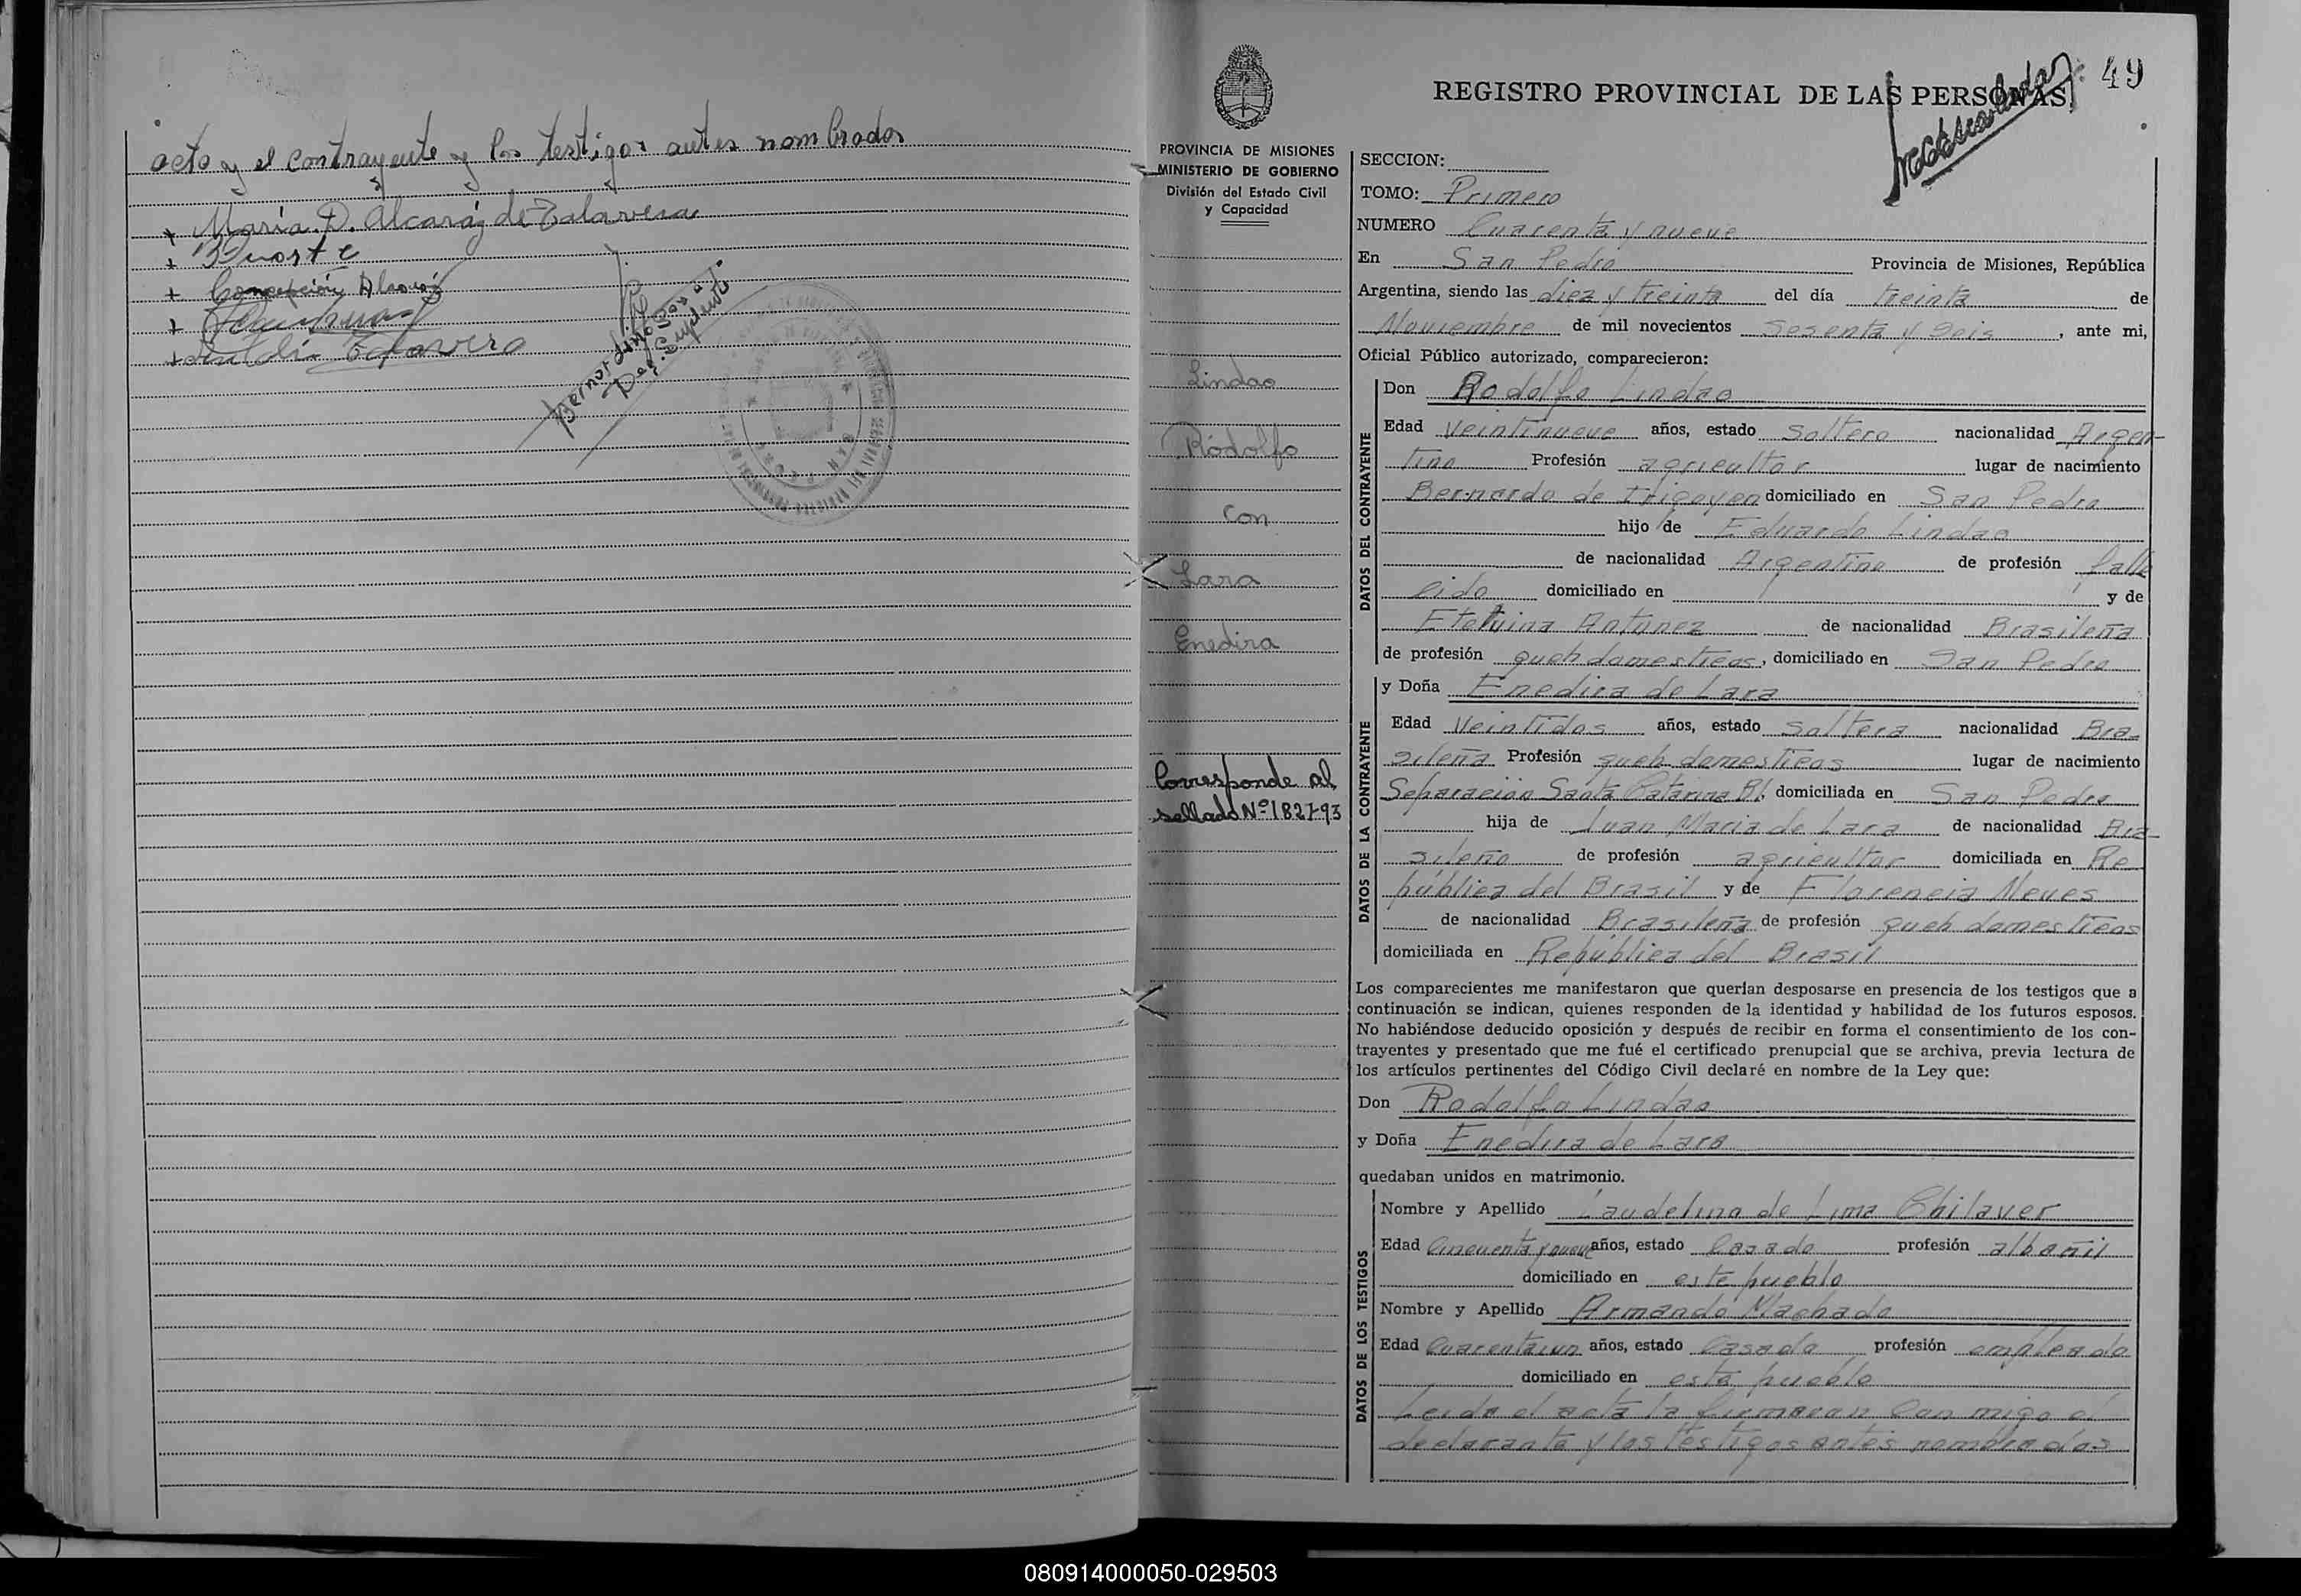 acto y el contrayente y los testigos antes nombrados
+ María D. Alcaráz de Talavera
+
+ Concepción Alcaráz
+
+ Talavera
49
REGISTRO PROVINCIAL DE LAS PERSONAS
PROVINCIA DE MISIONES
MINISTERIO DE GOBIERNO
División del Estado Civil
y Capacidad
Lindao
Rodolfo
Con
Lara
Enedira
Corresponde al
sellado Nº 182793
SECCION:
TOMO: Primero
NUMERO Cuarenta y nueve
En San Pedro Provincia de Misiones, República
Argentina, siendo las diez y treinta del día treinta de
Noviembre de mil novecientos Sesenta y Seis, ante mi,
Oficial Público autorizado, comparecieron:
DATOS DEL CONTRAYENTE
Don Rodolfo Lindao
Edad Veintinueve años, estado Soltero nacionalidad Argen-
tino Profesión agricultor lugar de nacimiento
Bernardo de Irigoyen domiciliado en San Pedro
hijo de Eduardo Lindao
de nacionalidad Argentino de profesión falle
cido domiciliado en y de
Etelvina Antunez de nacionalidad Brasileña
de profesión queh domesticos, domiciliado en San Pedro
DATOS DE LA CONTRAYENTE
y Doña Enedira de Lara
Edad Veintidos años, estado Soltera nacionalidad Bra-
sileña Profesión queh domesticos lugar de nacimiento
Separación Santa Catarina Bl, domiciliada en San Pedro
hija de Juan Maria de Lara de nacionalidad Bra-
sileño de profesión agricultor domiciliada en Re
pública del Brasil y de Florencia Neves
de nacionalidad Brasileña de profesión queh domesticos
domiciliada en República del Brasil
Los comparecientes me manifestaron que querían desposarse en presencia de los testigos que a
continuación se indican, quienes responden de la identidad y habilidad de los futuros esposos.
No habiéndose deducido oposición y después de recibir en forma el consentimiento de los con-
trayentes y presentado que me fué el certificado prenupcial que se archiva, previa lectura de
los artículos pertinentes del Código Civil declaré en nombre de la Ley que:
Don Rodolfo Lindao
y Doña Enedira de Lara
quedaban unidos en matrimonio.
DATOS DE LOS TESTIGOS
Nombre y Apellido Laudelino de Lima Chilaver
Edad Cincuenta y nueve años, estado Casado profesión albañil
domiciliado en este pueblo
Nombre y Apellido Armando Machado
Edad Cuarentaiun años, estado Casado profesión empleado
domiciliado en este pueblo
Leida el acta la firmaran con migo el
declarante y los testigos antes nombrados
080914000050-029503